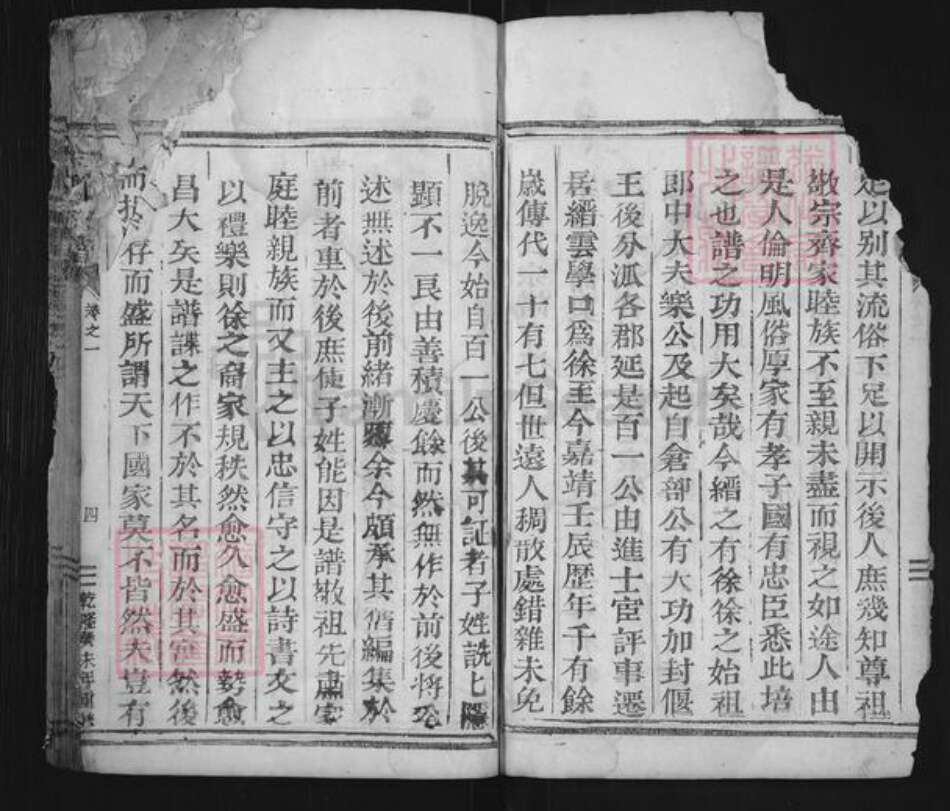 足以别其流俗下足以開示後人庶幾知尊祖
敬宗齊家睦族不至親未盡而視之如途人由
是人倫明風俗厚家有孝子國有忠臣悉此培
之也譜之功用大矣哉今縉之有徐徐之始祖
郎中大夫樂公及起自倉部公有大功加封偃
王後分派各郡延是百一公由進士宦評事遷
居縉雲學口爲徐至今嘉靖壬辰歷年千有餘
歲傳代一十有七但世遠人稠散處錯雜未免
脫逸今始自百一公後其可証者子姓詵七隱
顯不一良由善積慶餘而然無作於前後將
述無述於後前緒漸余今頗承其舊編集於
前者垂於後庶使子姓能因是譜敬祖先肅家
庭睦親族而又主之以忠信守之以詩書文之
以禮樂則徐之裔家規秩然愈久愈盛而勢愈
昌大矣是譜諜之作不於其名而於其實然後
存而盛所謂天下國家莫不皆然夫豈有
卷之一
四
乾隆癸未年重